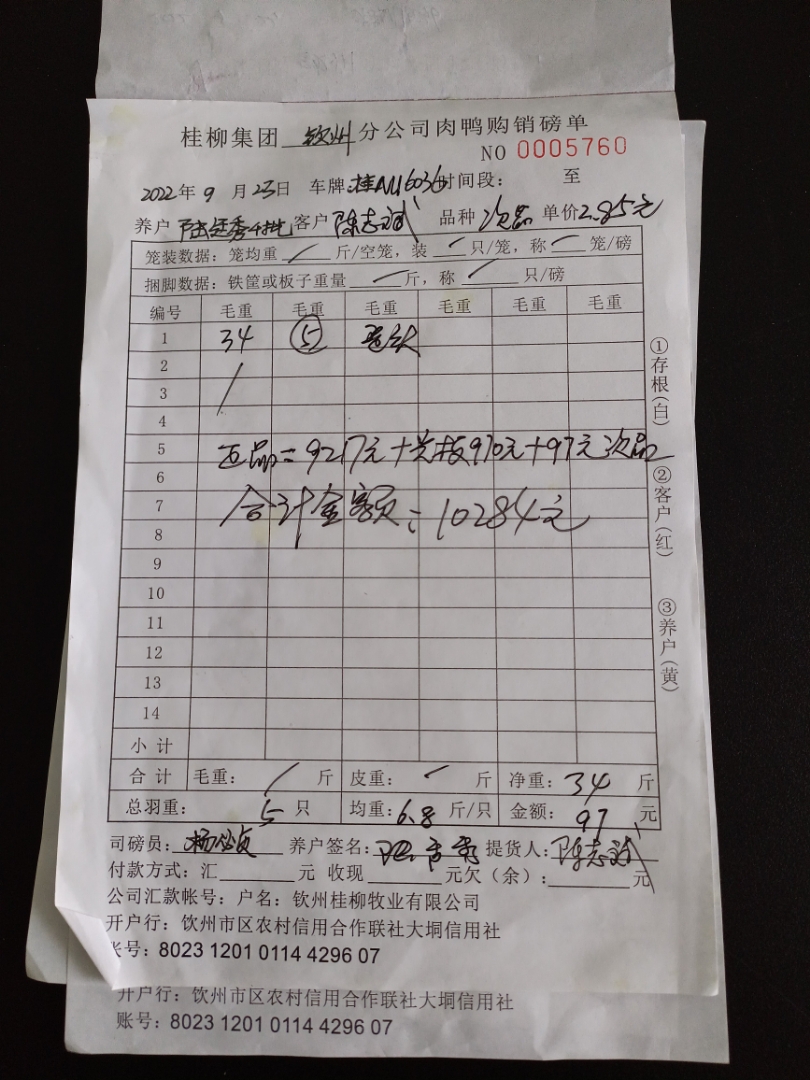 桂柳集团 钦州 分公司肉鸭购销磅单
NO 0005760
2022年 9 月 23日 车牌:桂 时间段: 至
养户 客户 陈志斌 品种 次品 单价2.85元
笼装数据:笼均重 / 斤/空笼,装 / 只/笼,称 / 笼/磅
捆脚数据:铁筐或板子重量 / 斤,称 / 只/磅
编号 毛重 毛重 毛重 毛重 毛重 毛重
1 34 ⑤
2
3 /
4
5 正品=9217元+光板970元+97元次品
6
7 合计金额:10284元
8
9
10
11
12
13
14
小计
合计 毛重: / 斤 皮重: / 斤 净重:34 斤
总羽重: 5 只 均重:6.8 斤/只 金额:97 元
司磅员: 养户签名: 提货人:陈志斌
付款方式:汇 元 收现 元欠(余): 元
公司汇款帐号:户名:钦州桂柳牧业有限公司
开户行:钦州市区农村信用合作联社大垌信用社
账号:8023 1201 0114 4296 07
①存根(白)
②客户(红)
③养户(黄)
开户行:钦州市区农村信用合作联社大垌信用社
账号:8023 1201 0114 4296 07